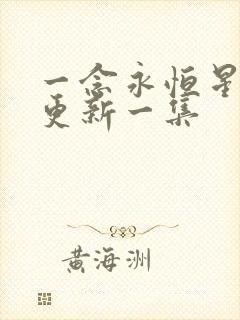 一念永恒星
更新一集
黄海洲